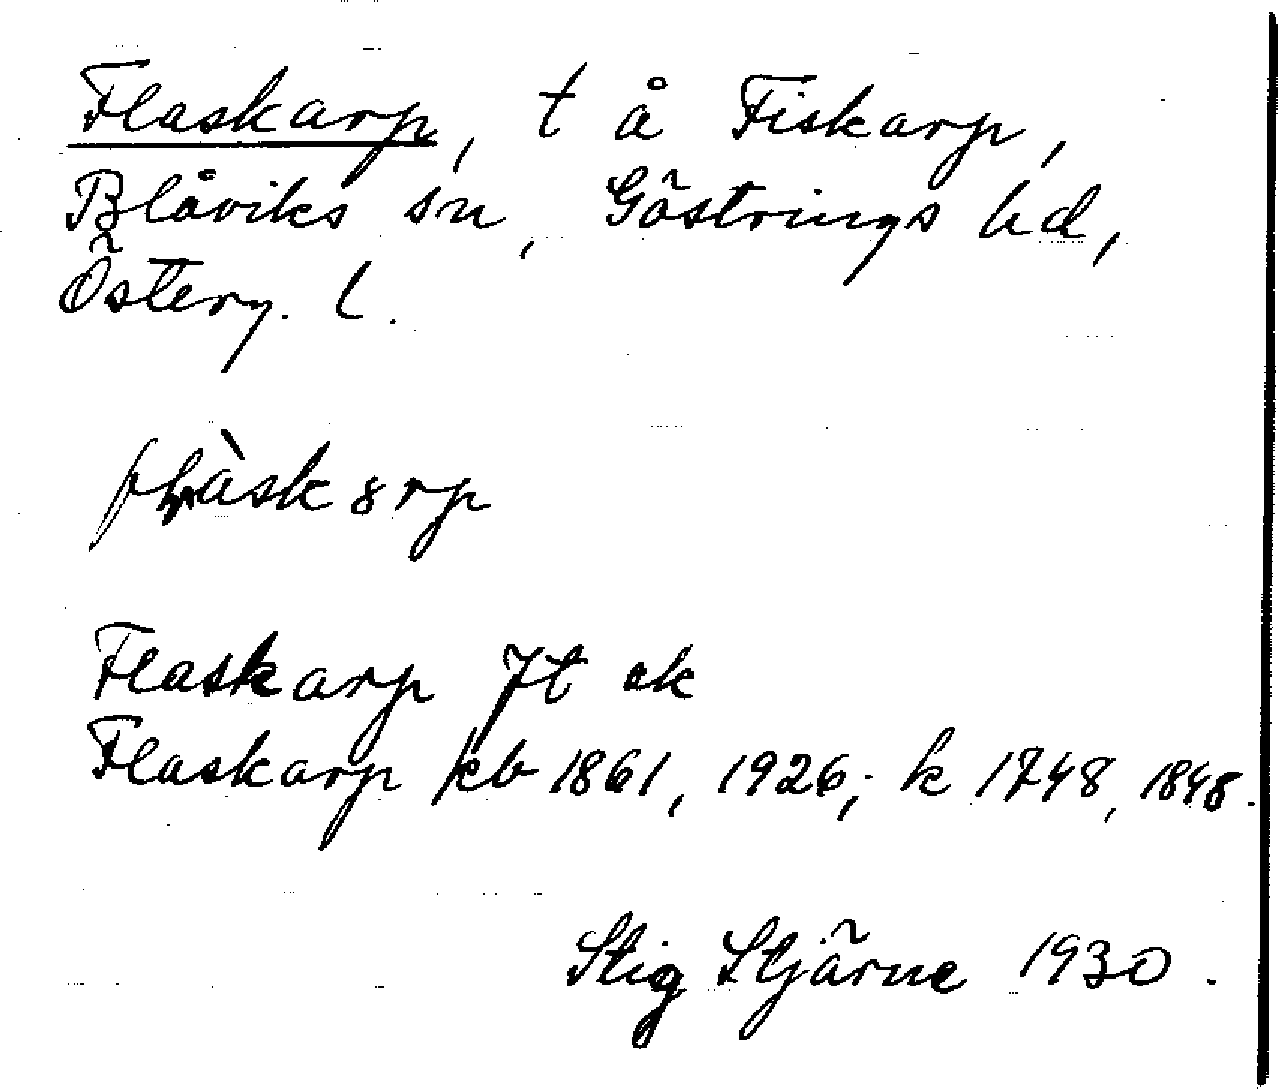 Flaskarp, t å Fiskarp,
Blåviks sn, Göstrings hd,
Österg. l.
flàskarp
Flaskarp Jt ek
Flaskarp kb 1861, 1926; k 1748, 1848.
Stig Stjärne 1930.